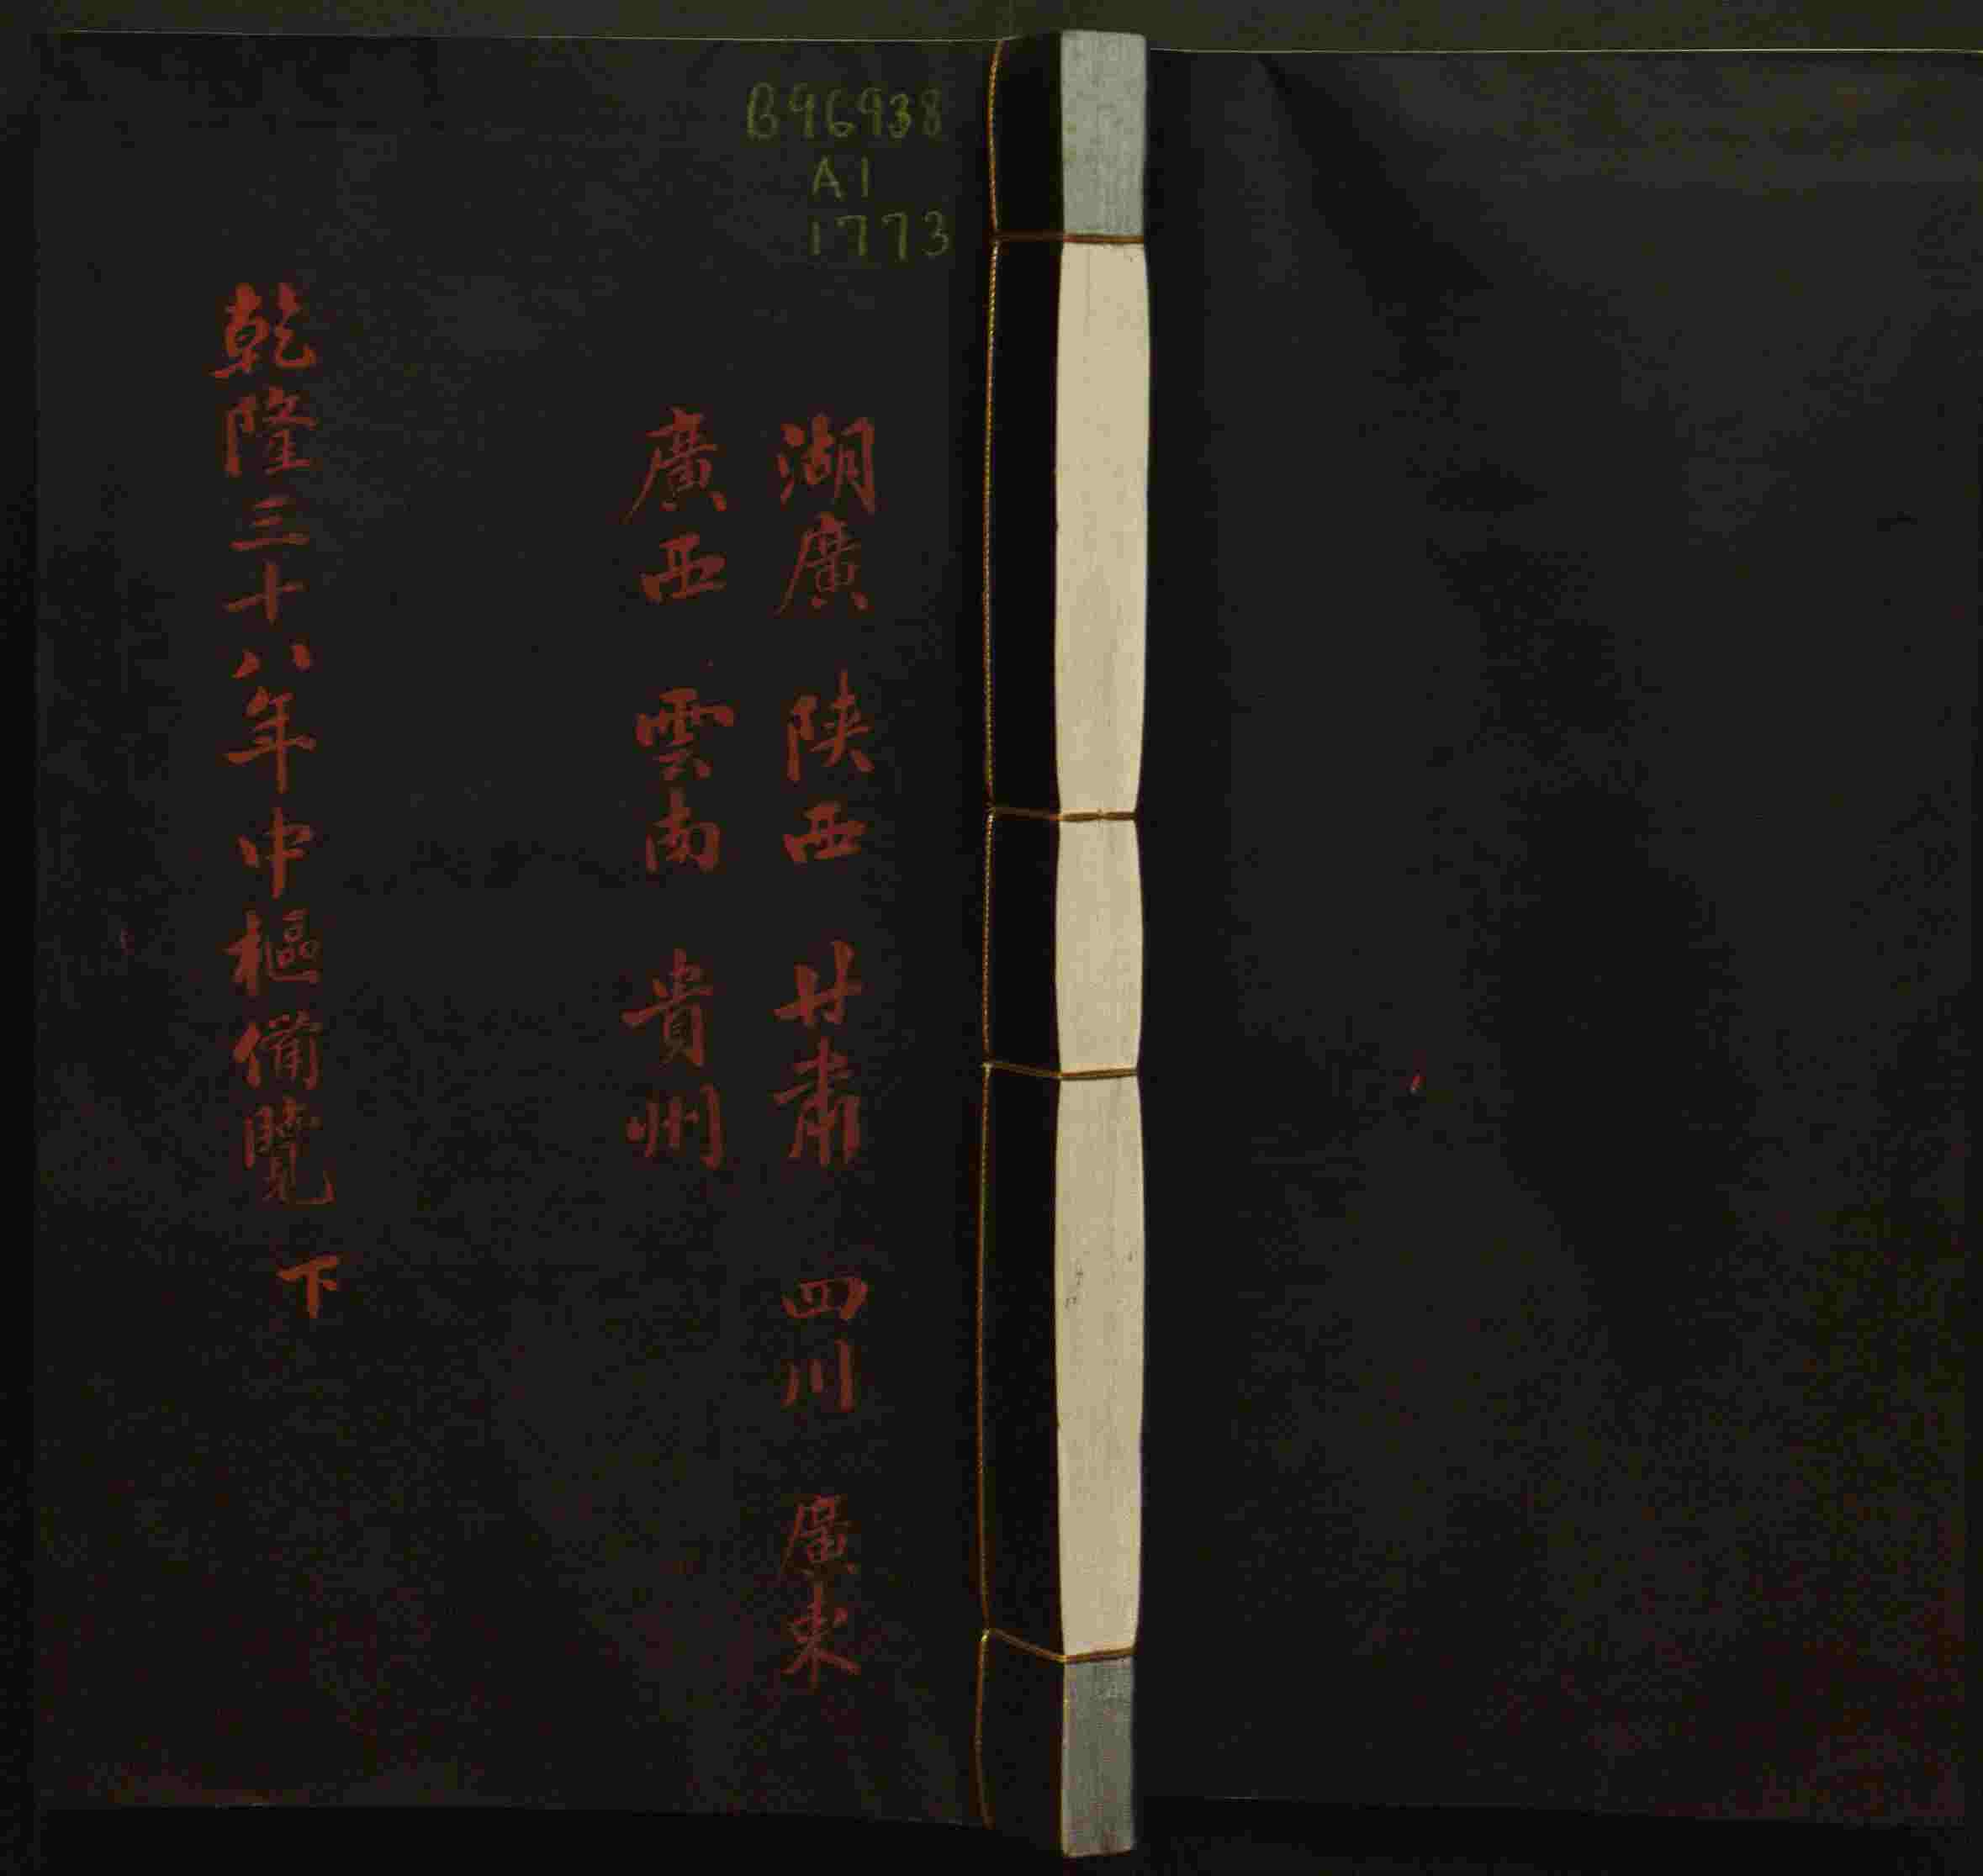 B96938
A1
1773
湖廣 陕西 甘肅 四川 廣東
廣西 雲南 貴州
乾隆三十八年中樞備覽 下